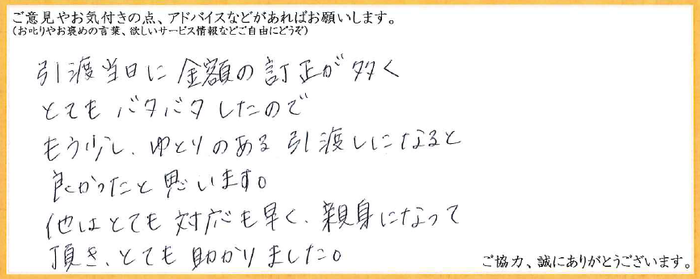 ご意見やお気付きの点、アドバイスなどがあればお願いします。
(お叱りやお褒めの言葉、欲しいサービス情報などご自由にどうぞ)
引渡当日に金額の訂正が多く
とてもバタバタしたので
もう少し、ゆとりのある引渡しになると
良かったと思います。
他はとても対応も早く、親身になって
頂き、とても助かりました。
ご協力、誠にありがとうございます。